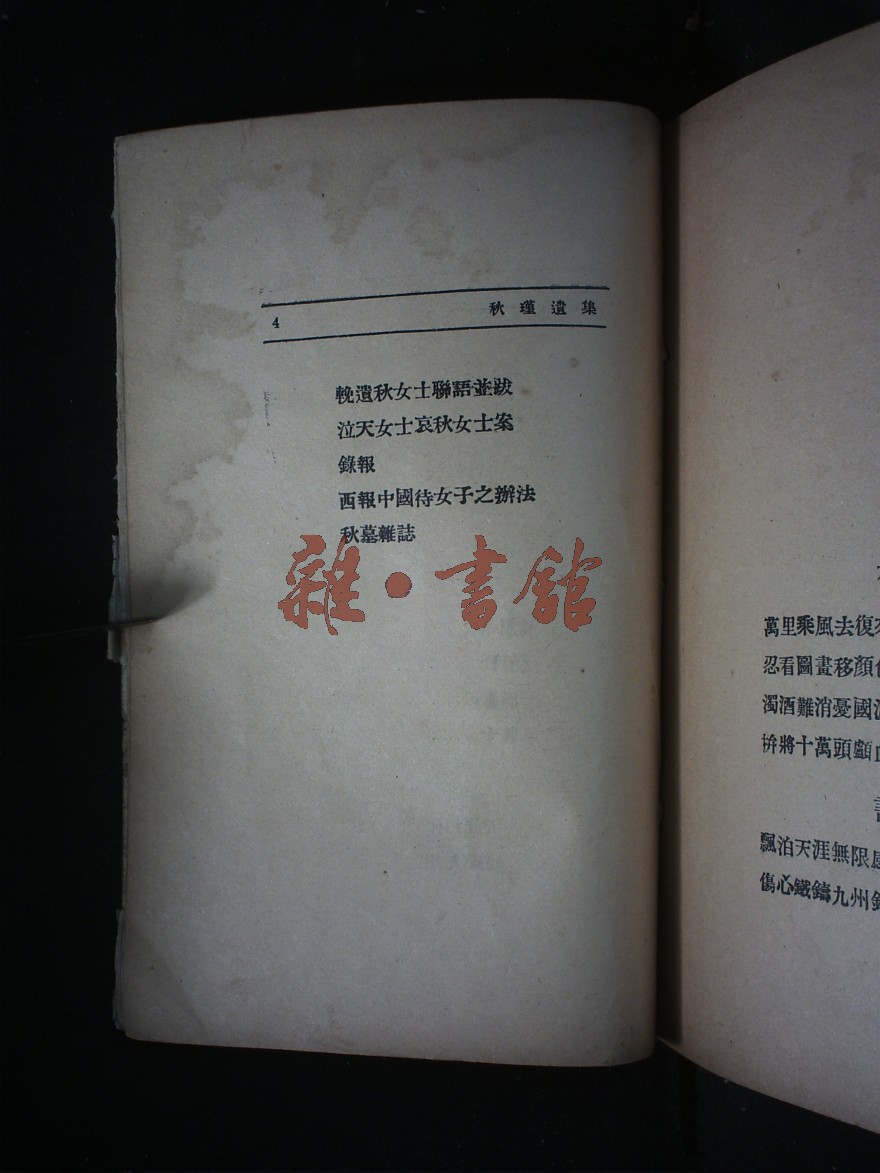 4 秋瑾遺集
輓遺秋女士聯語並跋
泣天女士哀秋女士案
錄報
西報中國待女子之辦法
秋墓雜誌
雜·書館
萬里乘風去復
忍看圖畫移顏
濁酒難消憂國
拚將十萬頭顱
飄泊天涯無限
傷心鐵鑄九州